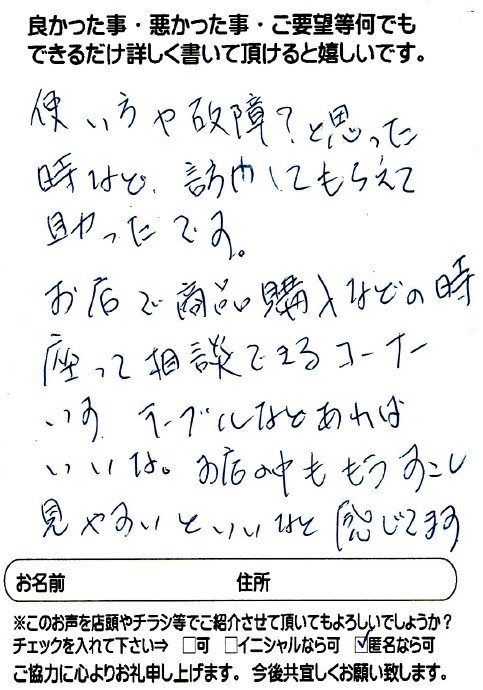 良かった事・悪かった事・ご要望等何でも
できるだけ詳しく書いて頂けると嬉しいです。
使い方や故障?と思った
時など、訪問してもらえて
助かったです。
お店で商品購入などの時
座って相談できるコーナー
いす テーブルなどあれば
いいな。お店の中ももうすこし
見やすいといいなと感じてます
お名前 住所
※このお声を店頭やチラシ等でご紹介させて頂いてもよろしいでしょうか?
チェックを入れて下さい⇒ □可 □イニシャルなら可 ☑匿名なら可
ご協力に心よりお礼申し上げます。今後共宜しくお願い致します。